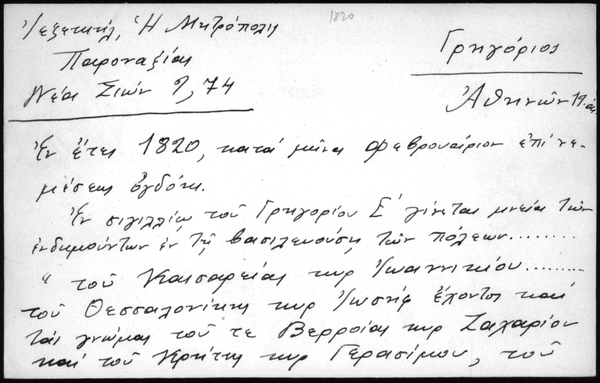 Ἰεζεκιήλ, Ἡ Μητρόπολις
Παροναξίας
Νέα Σιών 9, 74
1820
Γρηγόριος
Ἀθηνῶν
Ἐν ἔτει 1820, κατά μῆνα Φεβρουάριον ἐπινε-
μέσεως ὀγδόης.
Ἐν σιγιλλίῳ τοῦ Γρηγορίου Ε΄ γίνεται μνεία τῶν
ἐνδημούντων ἐν τῇ βασιλευούσῃ τῶν πόλεων........
" τοῦ Καισαρείας κυρ Ἰωαννικίου.........
τοῦ Θεσσαλονίκης κυρ Ἰωσήφ ἔχοντος καί
τάς γνώμας τοῦ τε Βερροίας κυρ Ζαχαρίου
καί τοῦ Κρήτης κυρ Γερασίμου, τοῦ